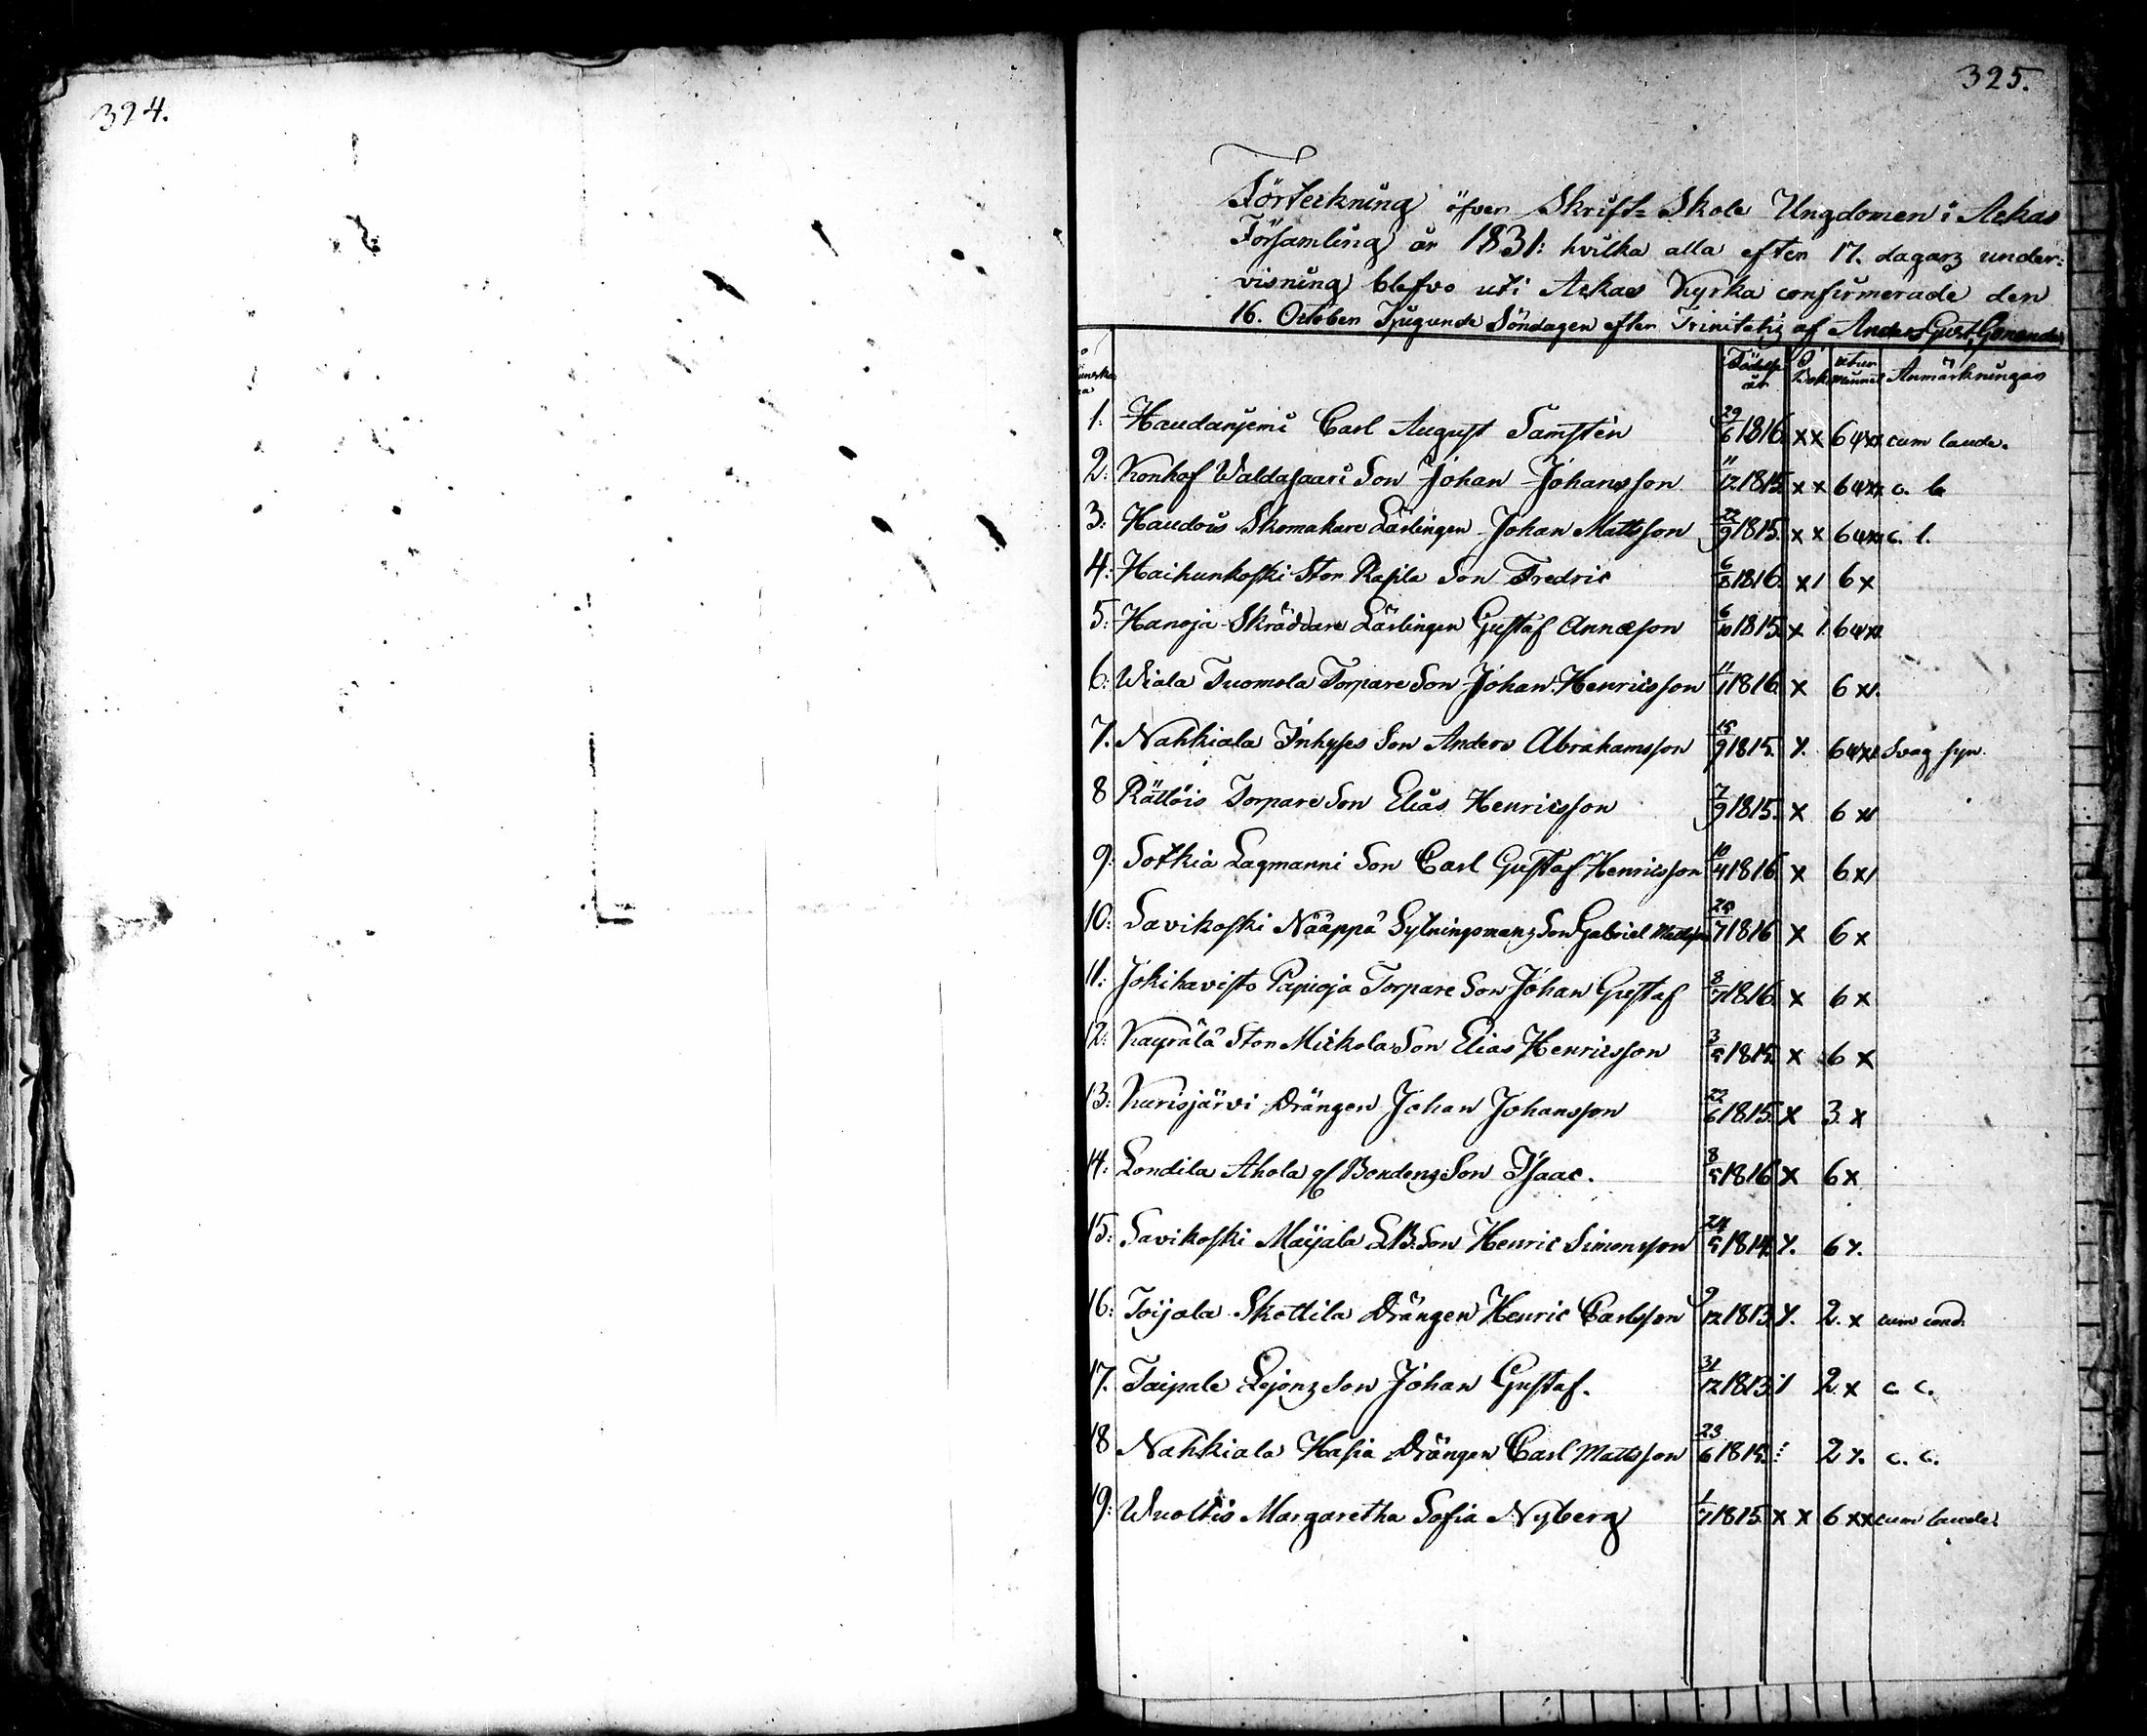 324.
325.
Förteckning öfver Skrift= Skole Ungdomen i Ackas
Församling år 1831: hvilka alla efter 17. dagars under=
visning blefvo uti Ackas Kyrka confirmerade den
16. October Tjugunde Söndagen efter Trinitatis af Anders Gust.
Födelse år I Bok utur minnet Anmärkningar
1: Haudanjemi Carl August Samstén 29/6 1816. x x 6 cum laude.
2: Konhof Waldasaari Son Johan Johansson 11/12 1815. x x 6 c. l.
3: Haudois Skomakare Lärlingen Johan Mattsson 22/9 1815. x x 6 c. l.
4: Haihunkoski Stor Rasila Son Fredric 6/8 1816. x 1 6 x
5: Hanoja Skräddare Lärlingen Gustaf Annæson 6/10 1815. x 1 6
6: Wiala Tuomola Torpare Son Johan Henricsson 11/1 1816. x 6 x1.
7. Nahkiala Inhyses Son Anders Abrahamsson 15/9 1815. x. 6 Svag syn.
8 Rättöis Torpare Son Elias Henricsson 7/9 1815. x 6 x1
9: Sotkia Lagmanni Son Carl Gustaf Henricsson 10/4 1816 x 6 x1
10: Savikoski Nääppä Sytningsmans Son Gabriel Mattsson 25/7 1816 x 6 x
11: Jokihavisto Papuoja Torpare Son Johan Gustaf 8/7 1816. x 6 x
12: Kayrälä Stor Mickola Son Elias Henricsson 3/5 1815. x 6 x
13: Kurisjärvi Drängen Johan Johansson 22/6 1815. x 3. x
14: Londila Ahola Bondens Son Isaac. 8/5 1816 x 6 x
15: Savikoski Maijala LB. Son Henric Simonsson 24/5 1814. x. 6 x.
16: Toijala Skottila Drängen Henric Carlsson 9/12 1813. x. 2. x cum cond.
17. Taipale Lejons Son Johan Gustaf. 31/12 1813. 1 2. x c. c.
18 Nahkiala Hasia Drängen Carl Mattsson 23/6 1815. 2 x. c. c.
19: Wuoltis Margaretha Sofia Nyberg 1/7 1815 x x 6 xx cum laude.